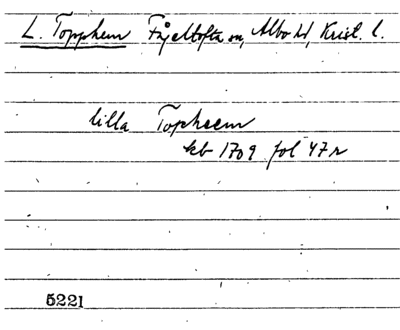 L. Topphem Fjelltofta sn, Albo hd, Krist. l.
lilla Topheem
kb 1709 fol 47r
5221